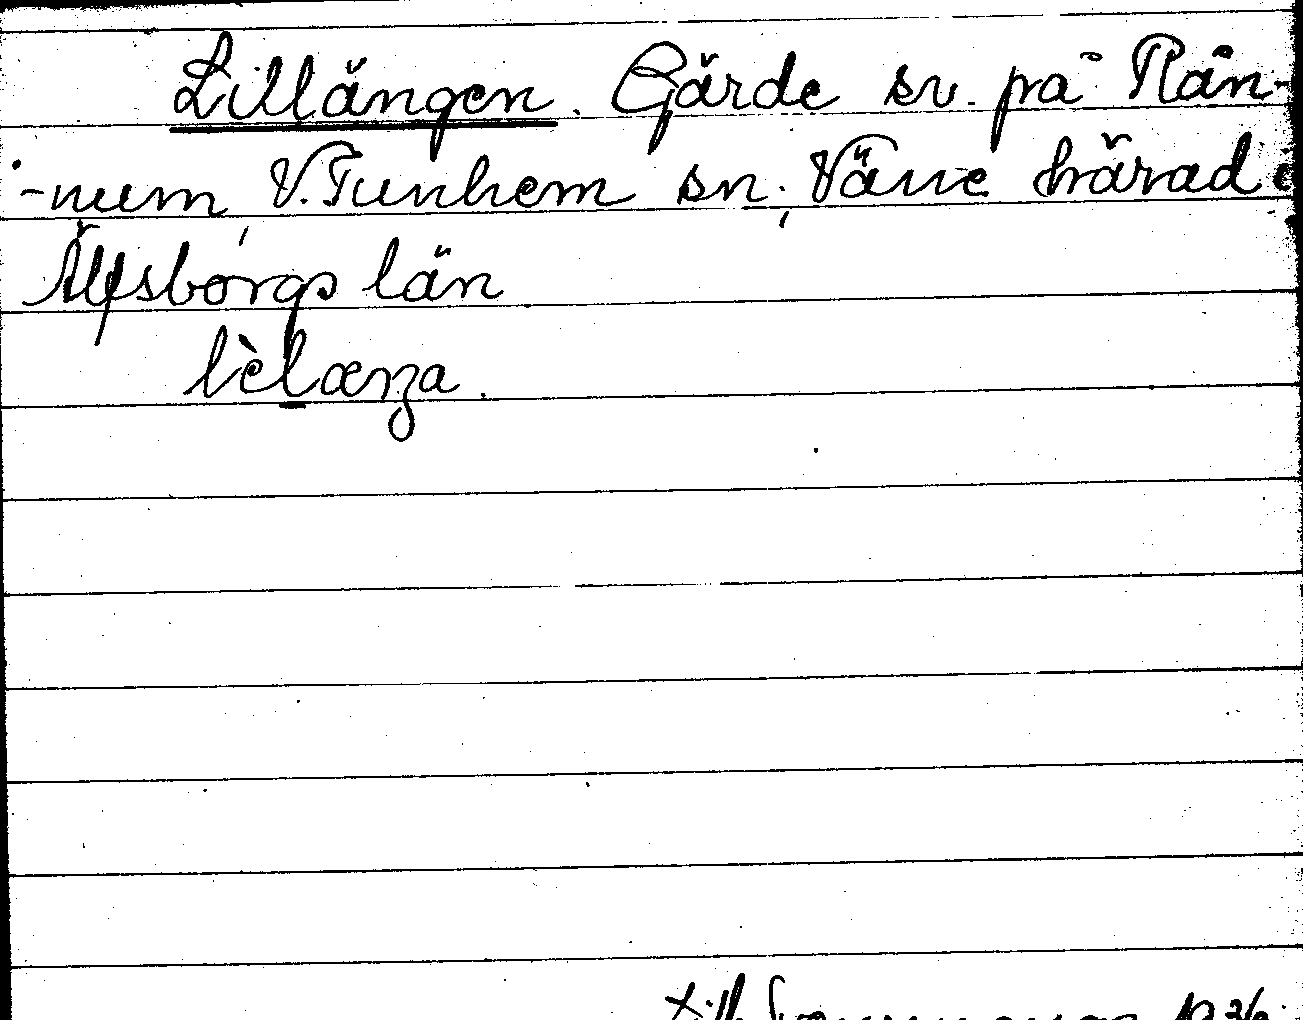 Lillängen. Gärde sv. på Rän-
-num, V. Tunhem sn, Väne härad
Älfsborgs län
lèlænza.